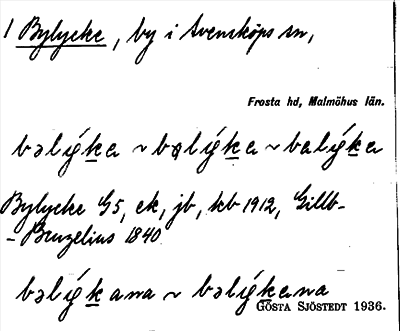 1 Bylycke, by i Svensköps sn,
Frosta hd, Malmöhus län.
bəlýḵa ~ bəlýḵa ~ balýḵa
Bylycke G5, ek, jb, kb 1912, Gillb-
-Bruzelius 1840
bəlýḵana ~ bəlýḵana
GÖSTA SJÖSTEDT 1936.